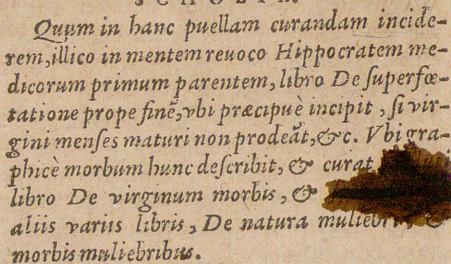 Quum in hanc puellam curandamincide-
rem, illico in mentem reuoco Hippocratem me-
dicorum primum parentem, libro De superfœ-
tatione prope finẽ, vbi præcipuè incipit, si vir-
gini menses maturi non prodeãt, &c. Vbi gra-
phicè morbum hunc describit, & curat
libro De virginum morbis, &
aliis variis libris, De natura muliebri, &
morbis muliebribus.